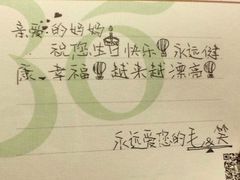 亲爱的妈妈
祝您生日快乐 永远健
康 幸福 越来越漂亮
永远爱您的毛&笑